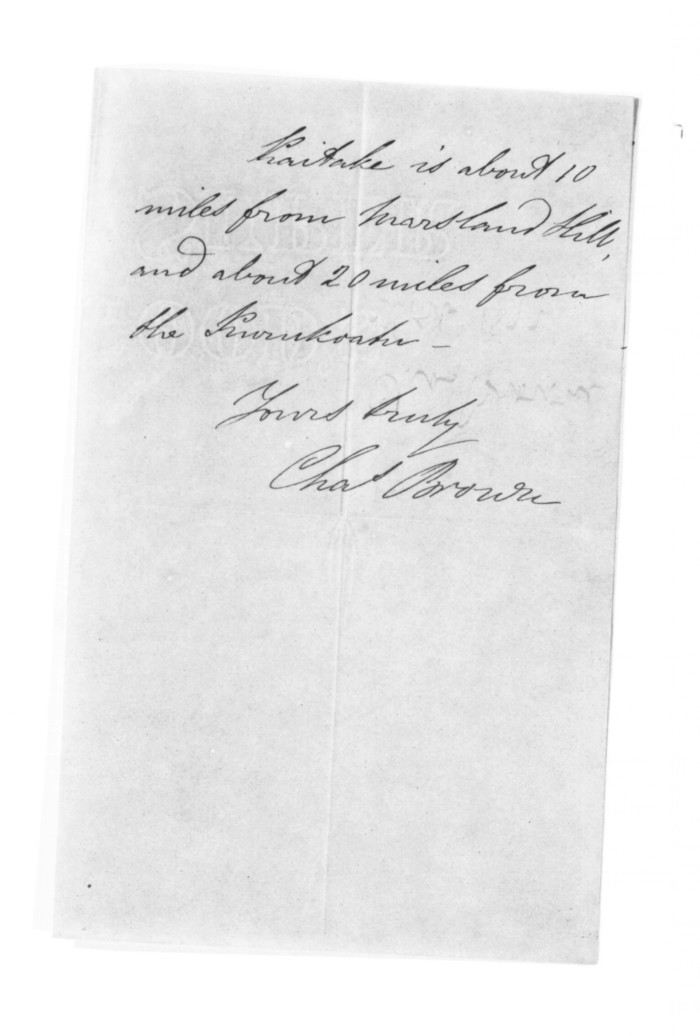 Kaitake is about 10
miles from Marsland Hill,
and about 20 miles from
the
Yours truly
Chas Brown